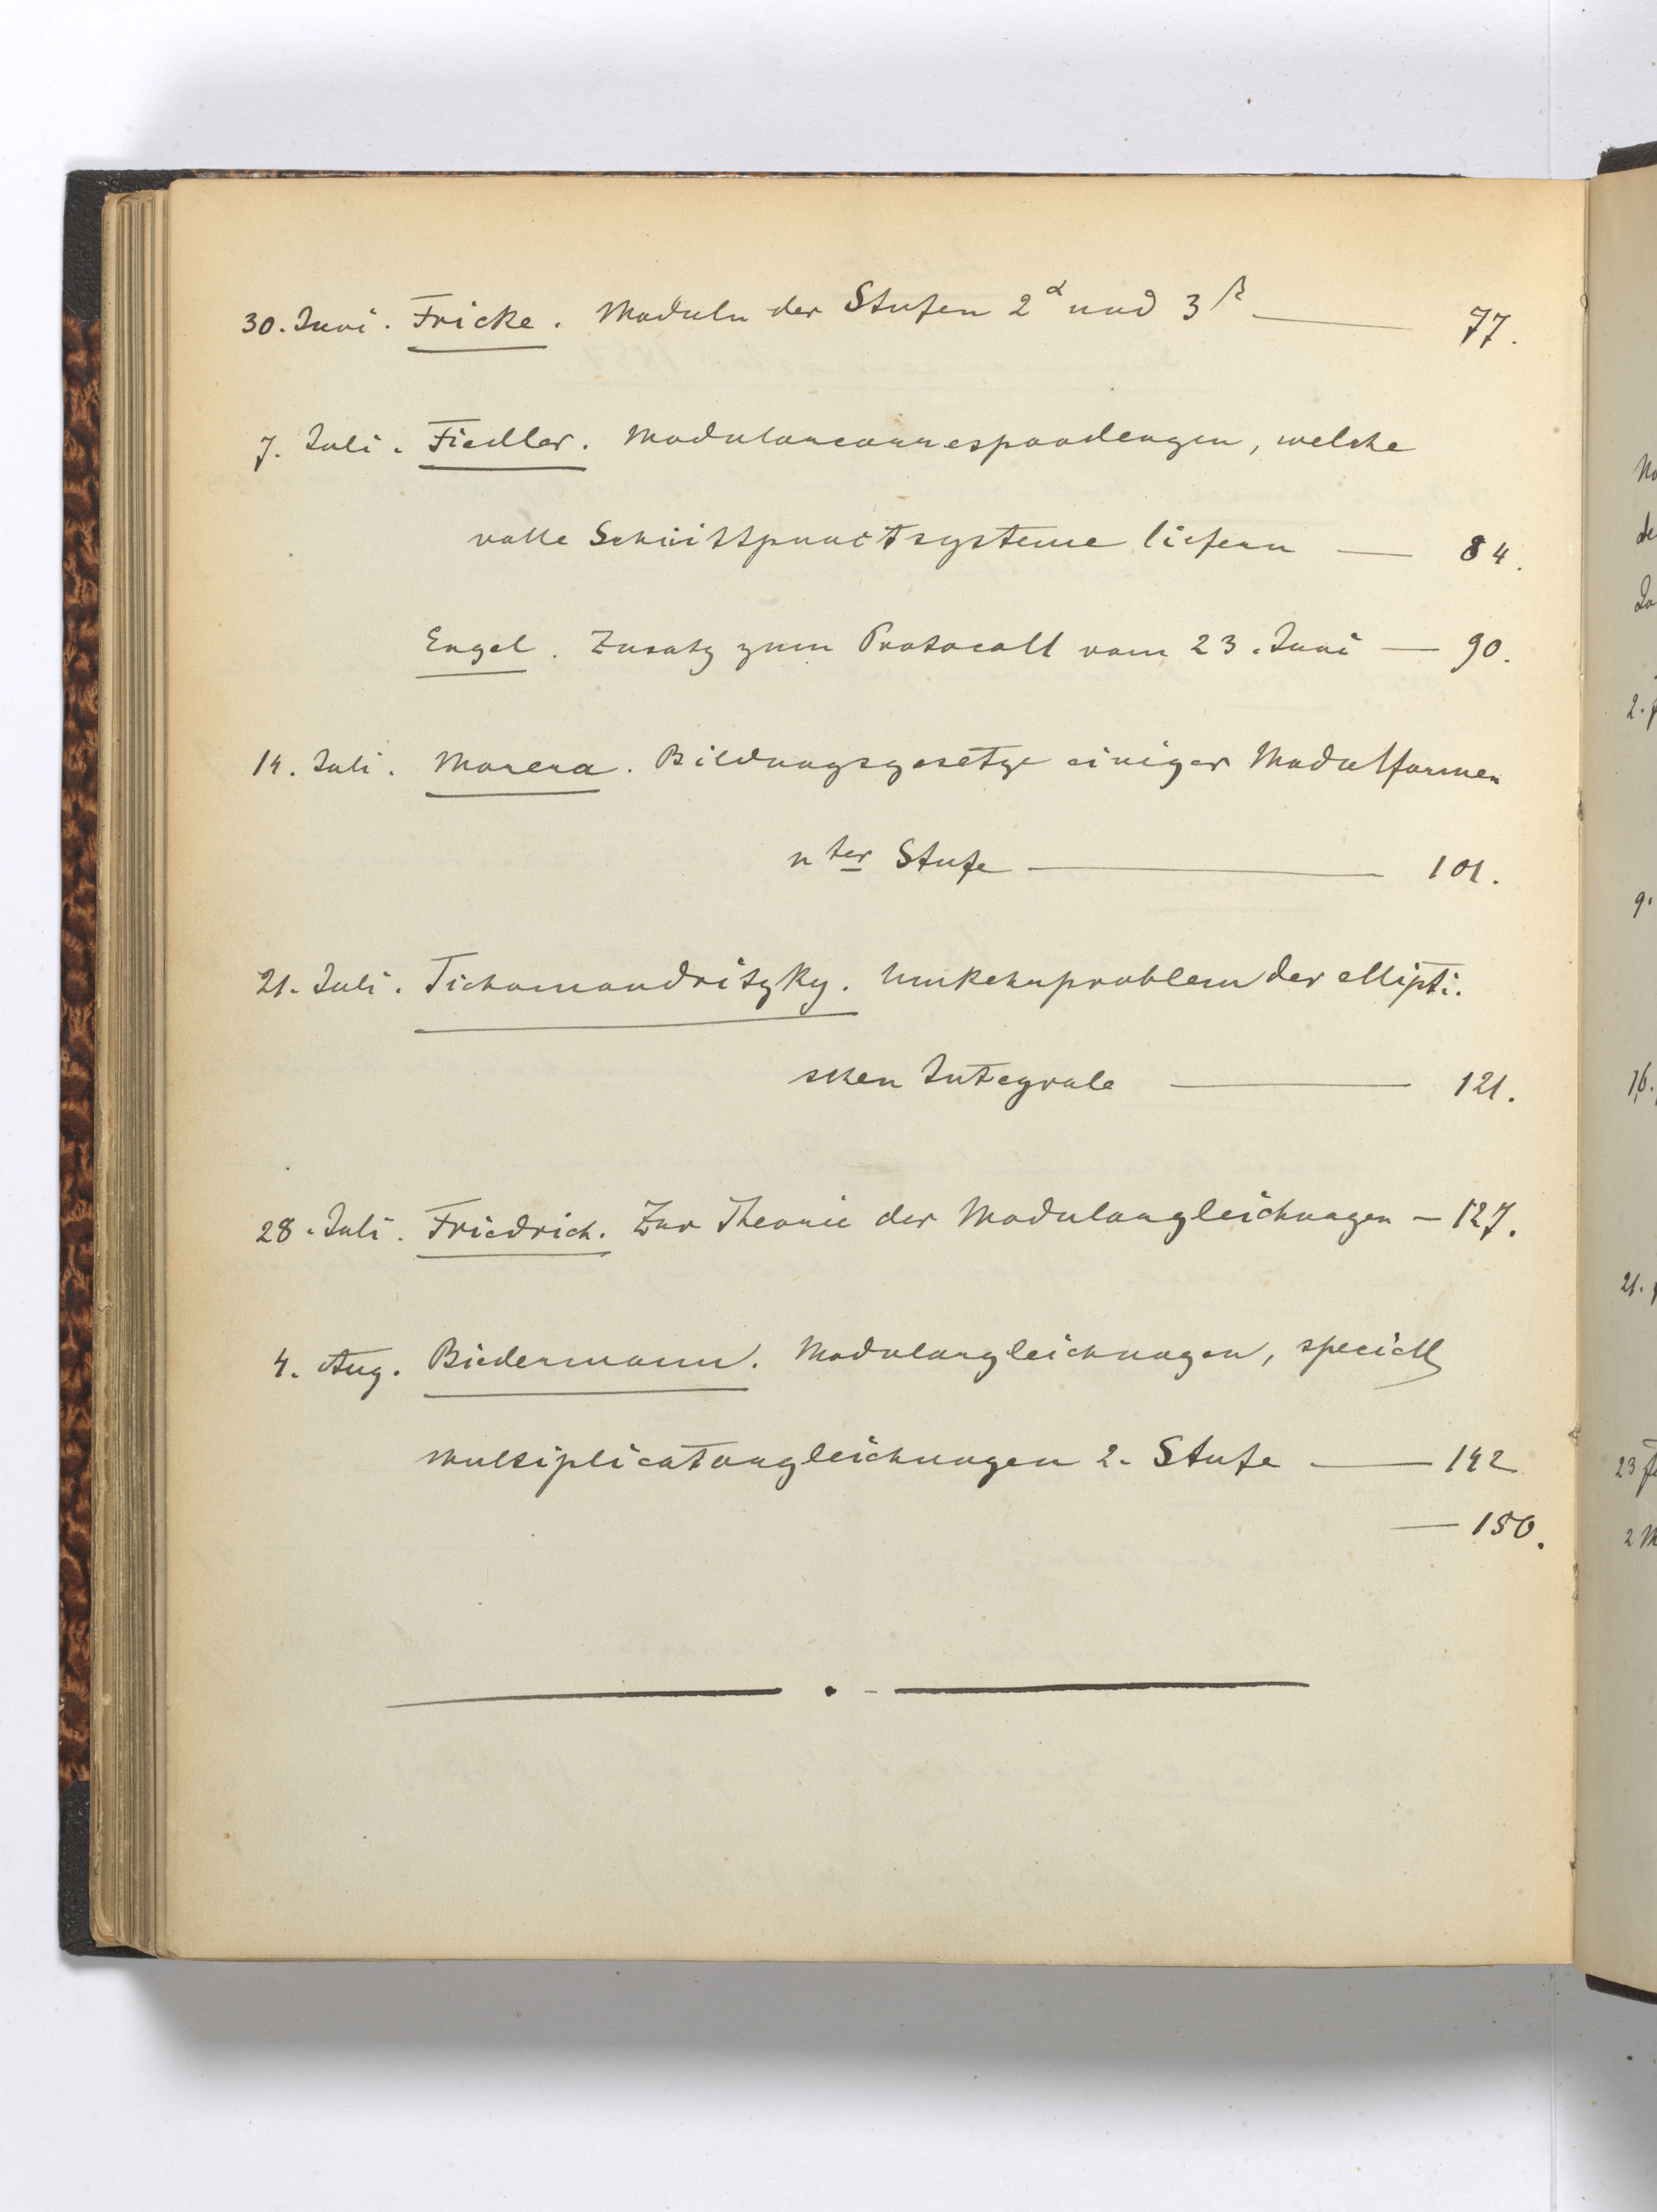 30. Juni. Fricke. Moduln der Stufen 2^α und 3^β — 77.
7. Juli. Fiedler. Modularcorrespondenzen, welche
volle Schnittpunctsysteme liefern — 84.
Engel. Zusatz zum Protocoll vom 23. Juni — 90.
14. Juli. Morera. Bildungsgesetze einiger Modulformen
nter Stufe — 101.
21. Juli. Tichomandritzky. Umkehrproblem der ellipti-
schen Integrale — 121.
28. Juli. Friedrich. Zur Theorie der Modulargleichungen — 127.
4. Aug. Biedermann. Modulargleichungen, speciell
Multiplicatorgleichungen 2. Stufe — 142
— 150.